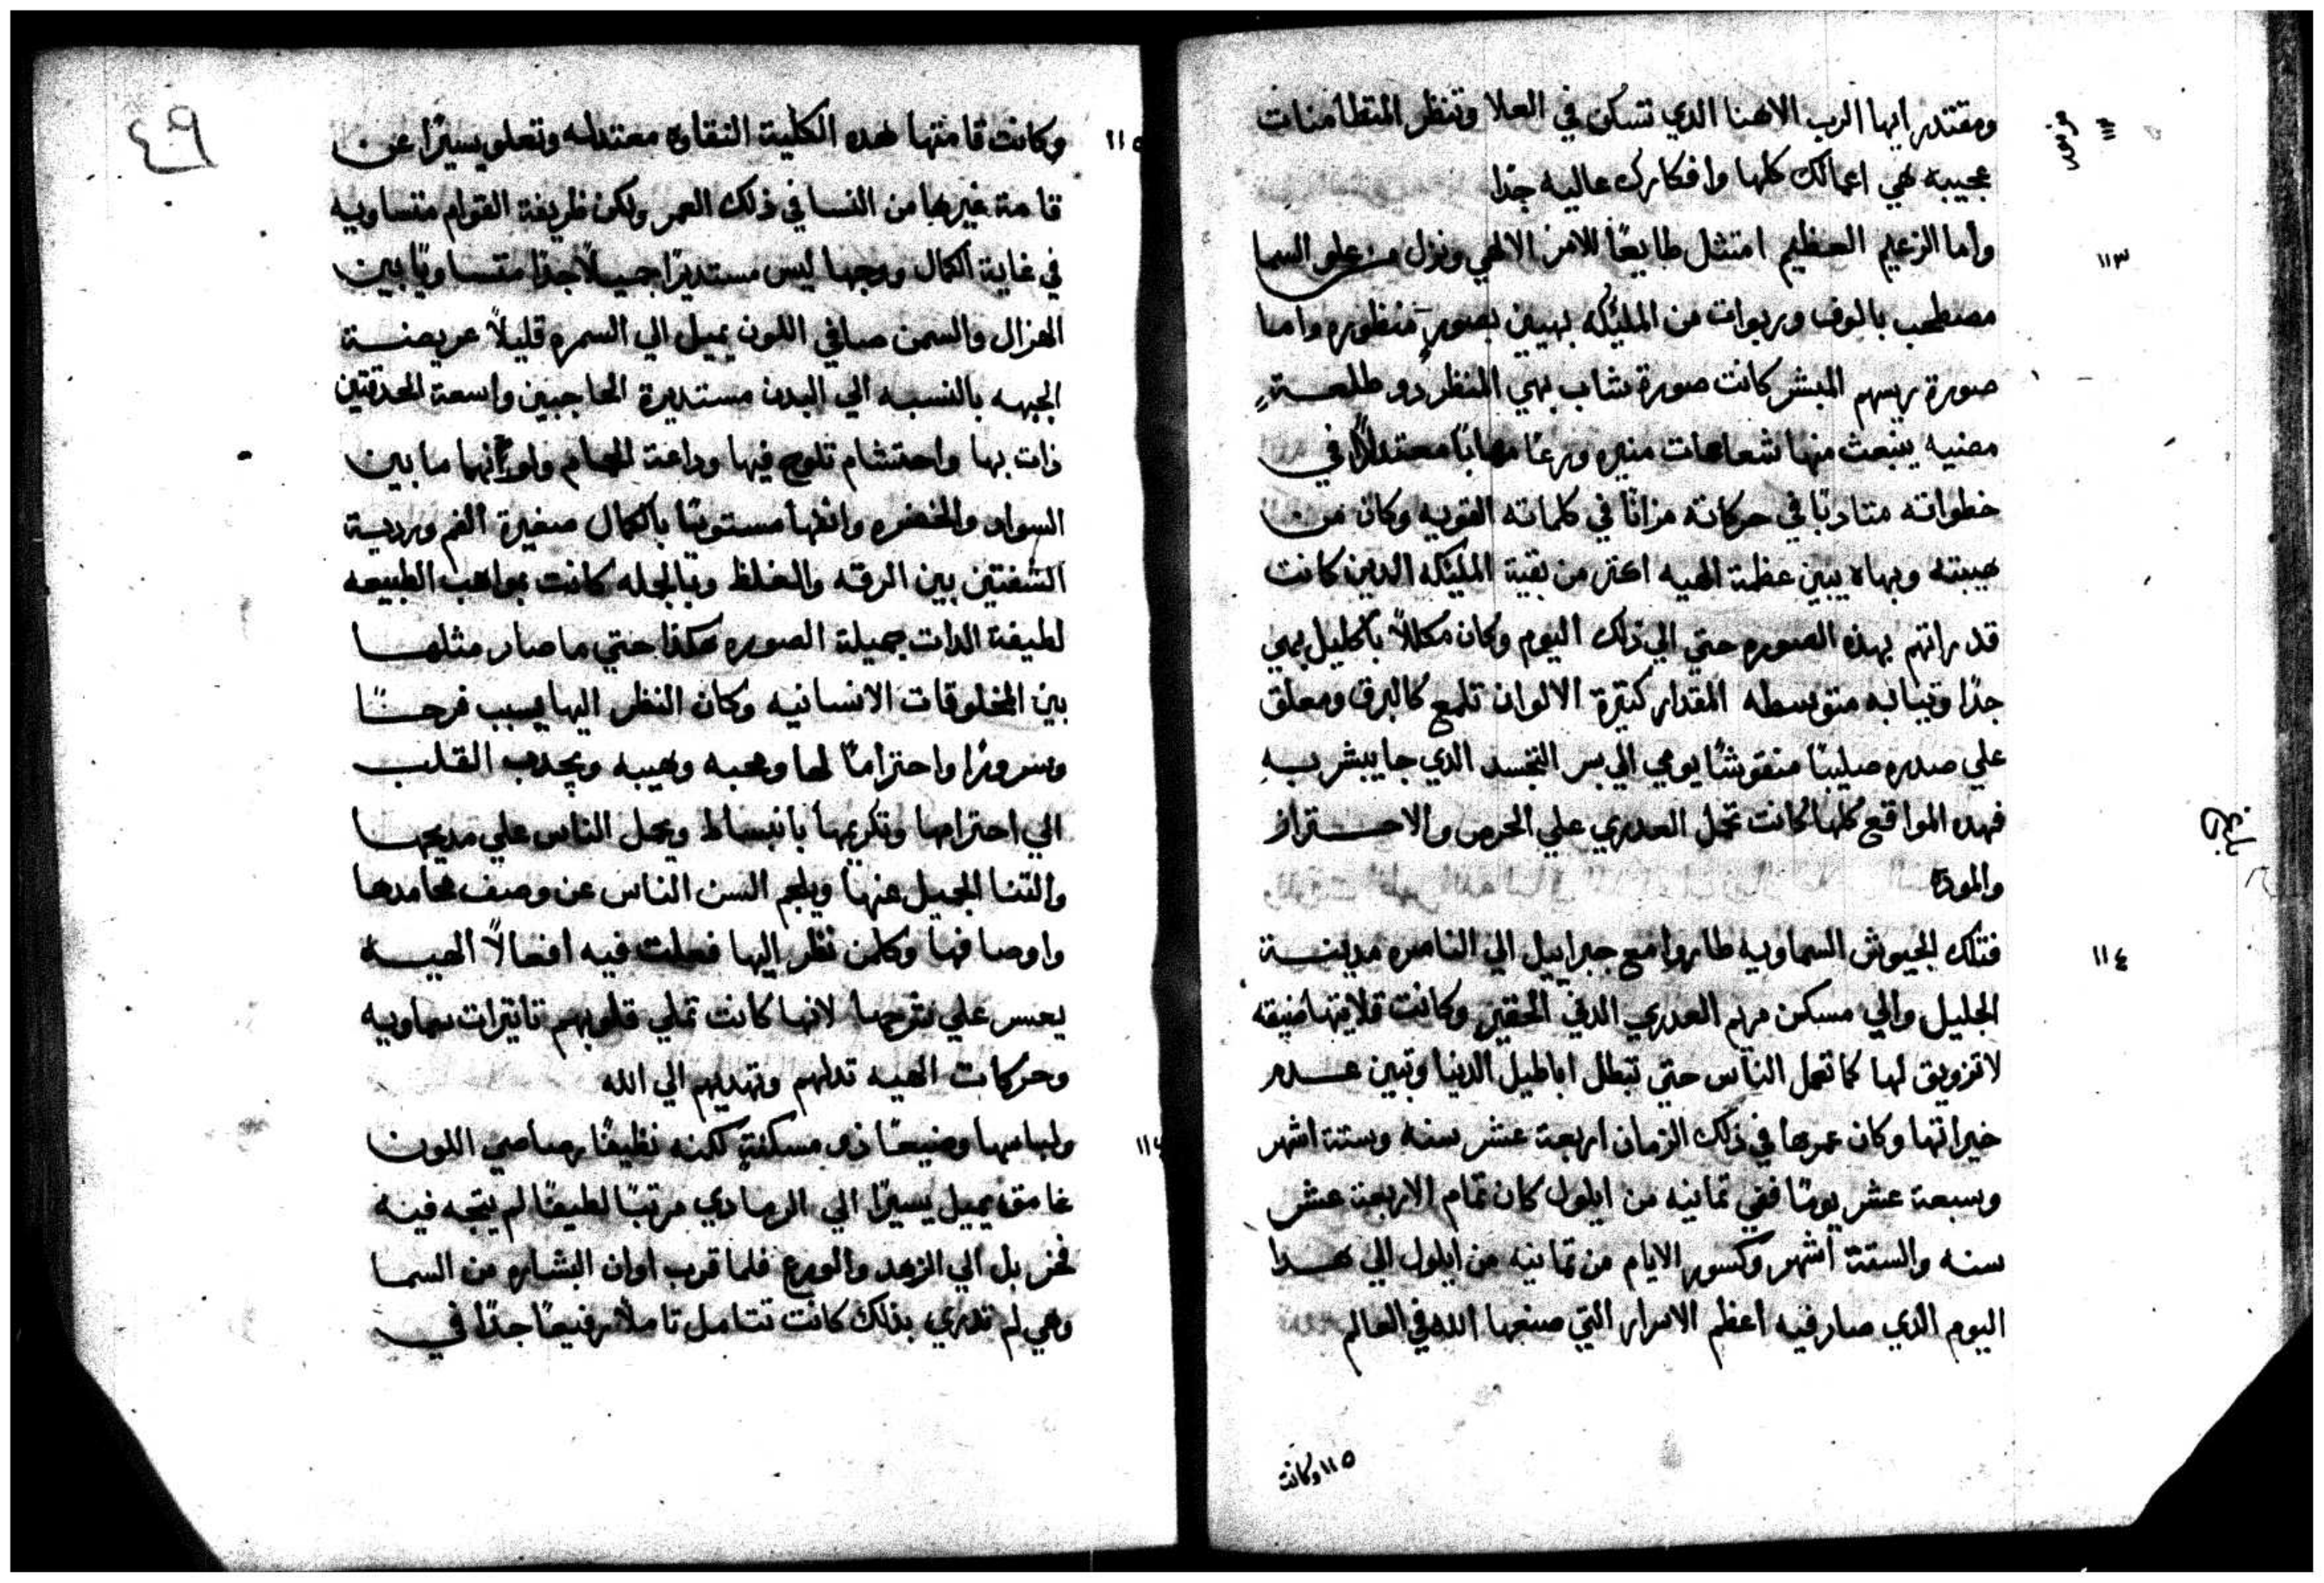 ومقتدر ايها الرب الاهنا الدي تسكن في العلا وتنظر المتطامنات
١١٢
مزمور
عجيبه هي اعمالك كلها وافكارك عاليه جدا
١١٣
واما الزعيم العظيم امتثل طايعًا للامر الالهي ونزل من علو السما
مصطحب بالوف وربوات من المليكه بهيين بصورٍ منظوره واما
صورة ريسهم المبشر كانت صورة شاب بهي المنظر دو طلعـــةٍ
مضيه ينبعث منها شعاعات منيره ورعًا مهابًا معتدلاً في
خطواته متادبًا في حركاته مزانًا في كلماته القويه وكان من
هيبته وبهاه يبين عظمة الهيه اعتر من بقية المليكه الدين كانت
قد راتهم بهذه الصوره حتي الي ذلك اليوم وكان مكللاً باكليل بهي
جدًا وتيابه متوسطه المقدار كتيرة الالوان تلمع كالبرق ومعلق
علي صدره صليبًا منقوشًا يومي الي سر التجسد الدي جا يبشر به
فهده المواقع كلها كانت تحمل العدري علي الحرص والاحـــتراز
والمودة
١١٤
فتلك الجيوش السماويه طاروا مع جبراييل الي الناصره مدينـــة
الجليل والي مسكن مريم العدري الدني الحقير وكانت قلايتها ضيقه
لا تزويق لها كما تعمل الناس حتي تبطل اباطيل الدنيا وتبين عـــدم
خيراتها وكان عمرها في ذلك الزمان اربعة عشر سنه وستة اشهر
وسبعة عشر يومًا ففي تمانيه من ايلول كان تمام الاربعة عشر
سنه والستة اشهر وكسور الايام من تمانيه من ايلول الي هـــدا
اليوم الدي صار فيه اعظم الاسرار التي صنعها الله في العالم
١١٥ وكانت
٤٩
١١٥
وكانت قامتها هده الكلية النقاوة معتدله وتعلو يسيرًا عن
قامة غيرها من النسا في ذلك العمر ولكن ظريفة القوام متساويه
في غاية الكمال ووجهها ليس مستديرًا جميلاً جدًا متساويًا بين
الهزال والسمن صافي اللون يميل الي السمره قليلاً عريضـــة
الجبهه بالنسبه الي البدن مستديرة الحاجبين واسعة الحدقتين
ذات بها واحتشام تلوح فيها وداعة الحمام ولونها ما بين
السواد والخضره وانفها مستويًا بالكمال صغيرة الفم ورديـة
الشفتين بين الرقه والغلظ وبالجمله كانت بمواهب الطبيعه
لطيفة الدات جميلة الصوره هكذا حتي ما صار مثلهـــا
بين المخلوقات الانسانيه وكان النظر اليها يسبب فرحـــًا
وسرورًا واحترامًا لها ومحبه وهيبه ويجدب القلـــب
الي احترامها وتكريمها بانبساط ويحمل الناس علي مديحهـــا
والتنا الجميل عنها ويلجم السن الناس عن وصف محامدها
واوصافها وكلمن نظر اليها فعلت فيه افعالاً الهيـــه
يعسر علي شرحها لانها كانت تملي قلوبهم تاتيرات سماويه
وحركات الهيه تدلهم وتهديهم الي الله
ولباسها وضيعًا ذي مسكنةٍ لكنه نظيفًا رصاصي اللون
غامق يميل يسيرًا الي الرمادي مرتبًا لطيفًا لم يتجه فيـه
فخر بل الي الزهد والورع فلما قرب اوان البشاره من السمـا
وهي لم تدري بذلك كانت تتامل تاملاً رفيعًا جدًا في